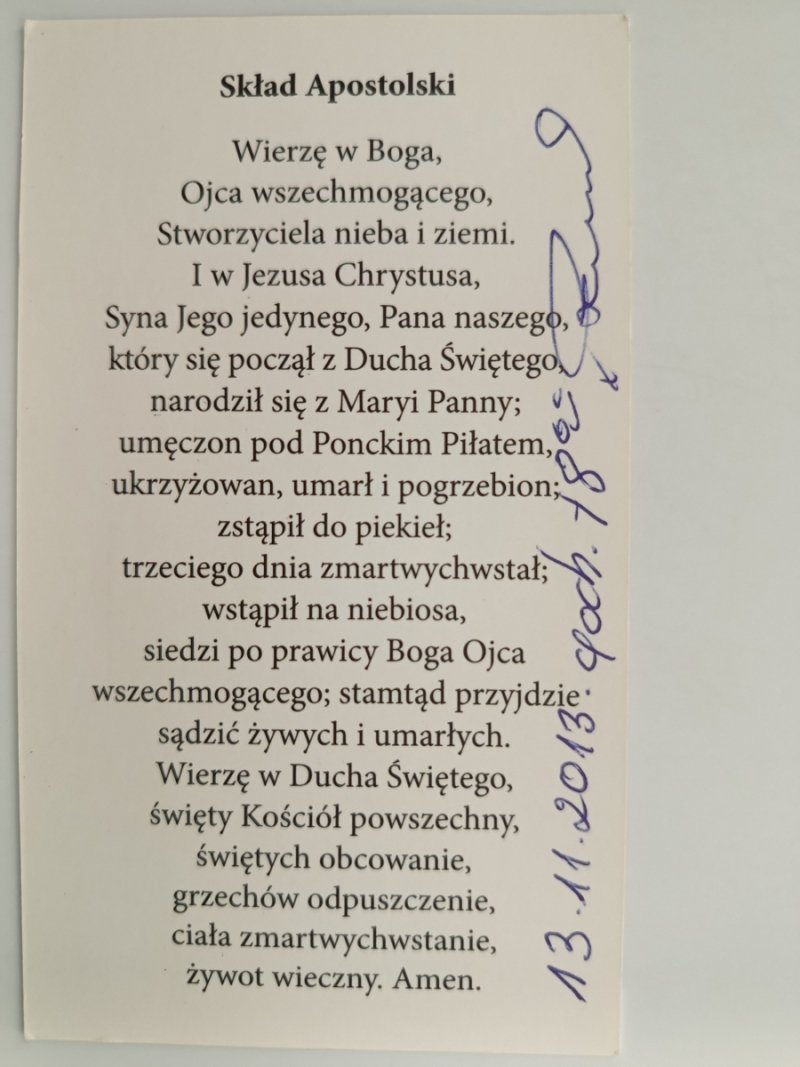 Skład Apostolski
Wierzę w Boga,
Ojca wszechmogącego,
Stworzyciela nieba i ziemi.
I w Jezusa Chrystusa,
Syna Jego jedynego, Pana naszego,
który się począł z Ducha Świętego,
narodził się z Maryi Panny;
umęczon pod Ponckim Piłatem,
ukrzyżowan, umarł i pogrzebion;
zstąpił do piekieł;
trzeciego dnia zmartwychwstał;
wstąpił na niebiosa,
siedzi po prawicy Boga Ojca
wszechmogącego; stamtąd przyjdzie
sądzić żywych i umarłych.
Wierzę w Ducha Świętego,
święty Kościół powszechny,
świętych obcowanie,
grzechów odpuszczenie,
ciała zmartwychwstanie,
żywot wieczny. Amen.
13.11.2013. godz. 18